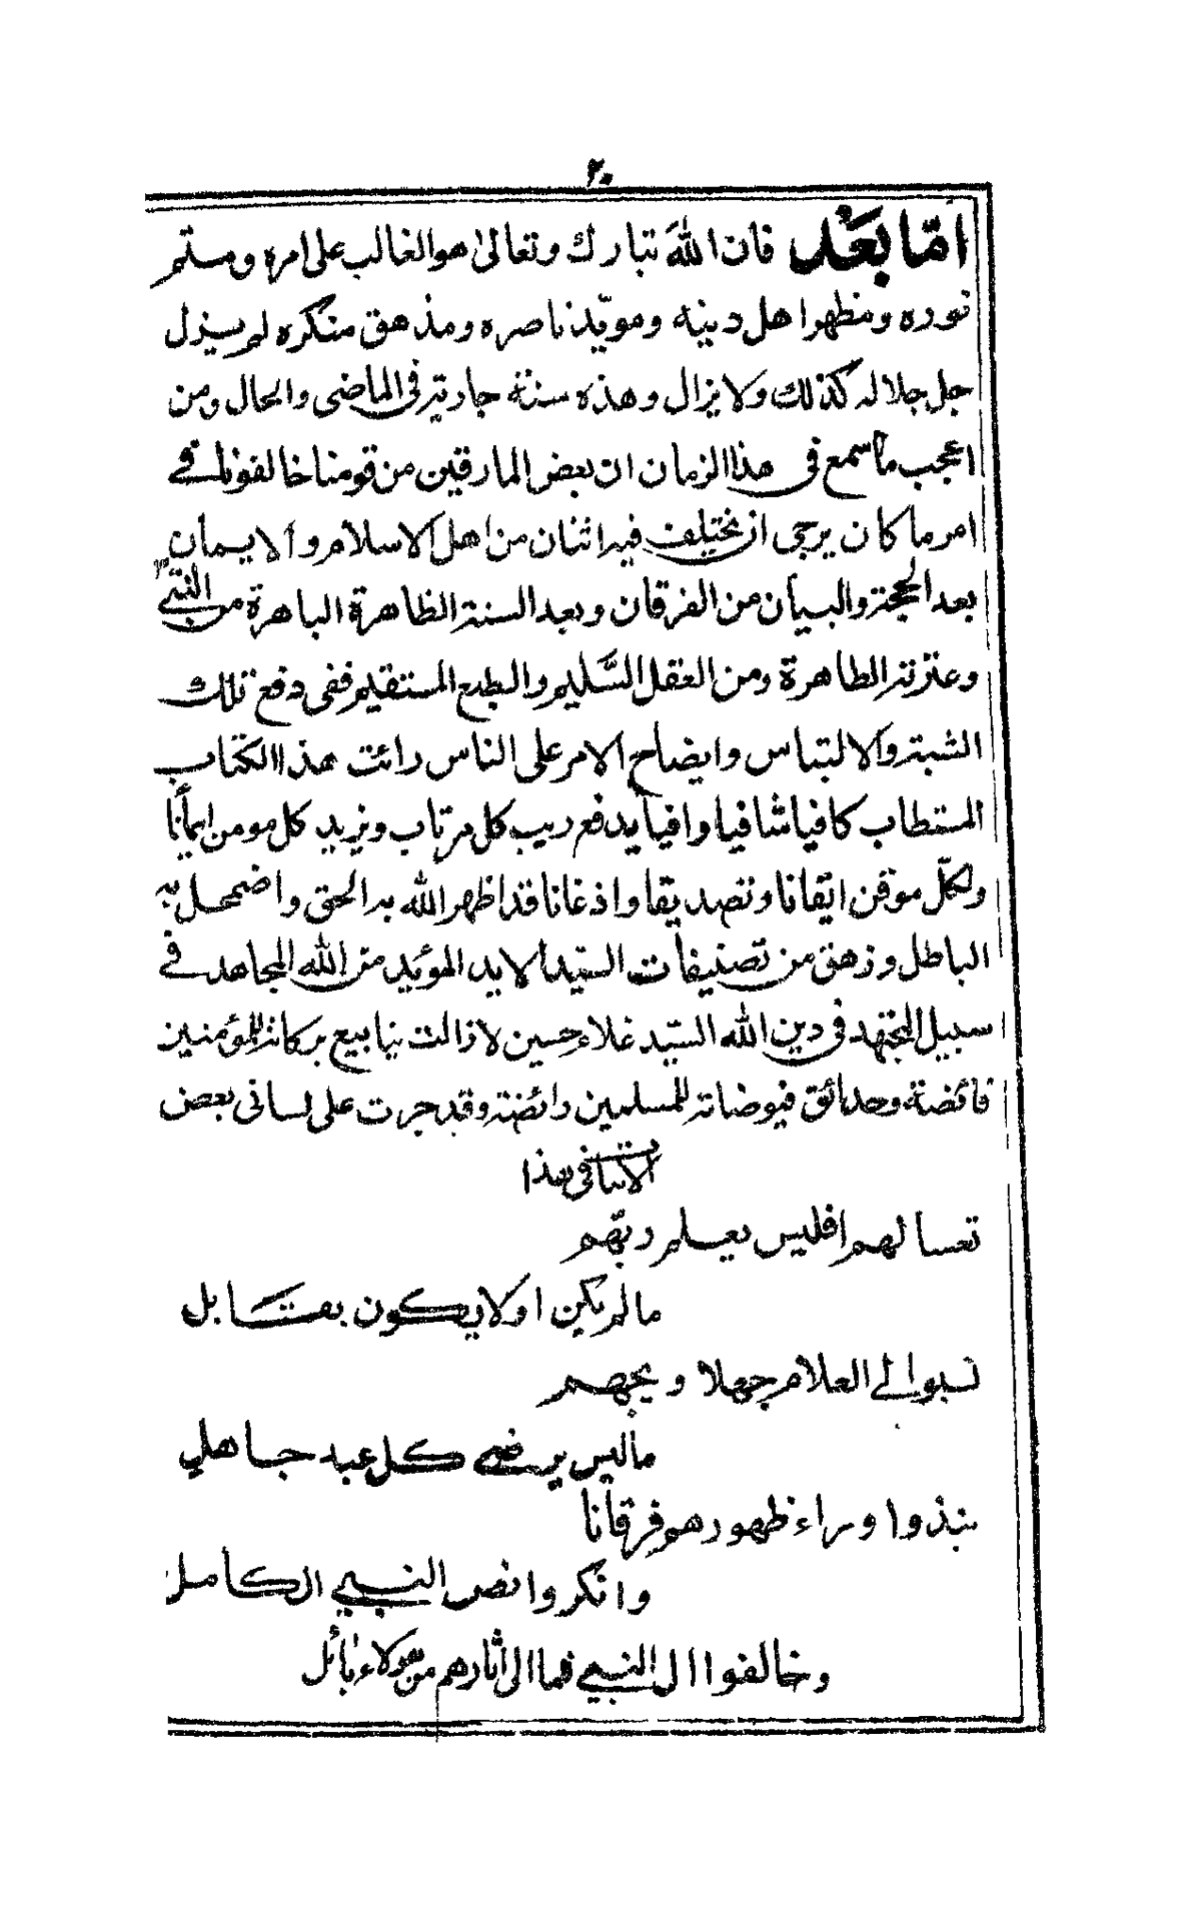 ٢٠
امّا بَعْد فان اللهَ تبارك وتعالىٰ هو الغالب على امره ومستمر
نوره ومظهر اهل دينه ومويّد ناصره ومذهق منكره لم يزل
جل جلاله كذلك ولا يزال وهذه سنة جارية فى الماضى والحال ومن
اعجب ما سمع فى هذا الزمان ان بعض المارقين من قومنا خالفونا فے
امر ما كان يرجى ان يختلف فيه اثنان من اهل الاسلام والايمان
بعد الحجة والبيان من الفرقان وبعد السنة الظاهرة الباهرة من النبیؐ
وعترته الطاهرة ومن العقل السّليم والطبع المستقيم ففى دفع تلك
الشبة والالتباس وايضاح الامر على الناس رائت هذا الكتاب
المستطاب كافيا شافيا وافيا يدفع ريب كل مرتاب ويزيد كل مومن ايمانا
ولكلّ موقن اتقانا وتصديقا واذعانا قد اظهر الله به الحق واضمحل به
الباطل وزهق من تصنيفات السيّد الايد المؤيد من الله المجاهد فے
سبيل المجتهد فى دين الله السيّد غلام حسين لا زالت ينابيع بركاته للمؤمنين
فائضة وحدائق فيوضاته للمسلمين رائضة وقد جرت على لسانى بعض
الابيات فى هذا
تعسا لهم افليس يعلم ربّهم
ما لم يكن او لا يكون بمقابل
نسبوا لے العلام جهلا ويحهم
ما ليس يرضے كل عبد جاهل
نبذوا وراء ظهورهم فرقانا
وانكروا نص النبي الكامل
وخالفوا ال النبي فما الى اثارهم من هولاء بائل